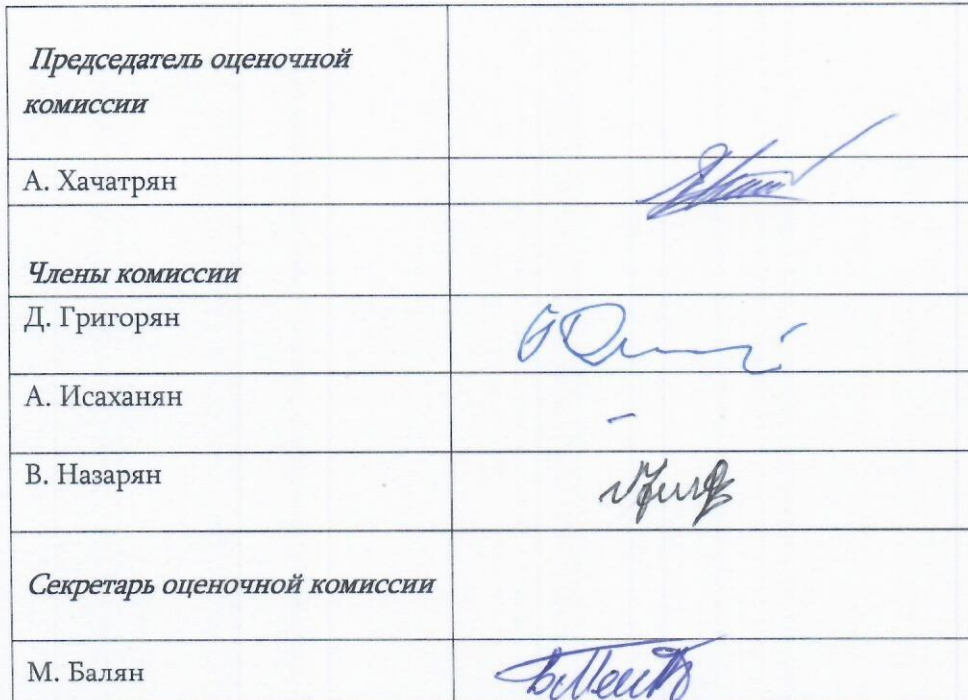 Председатель оценочной
комиссии
А. Хачатрян
Члены комиссии
Д. Григорян
А. Исаханян
-
В. Назарян
Секретарь оценочной комиссии
М. Балян